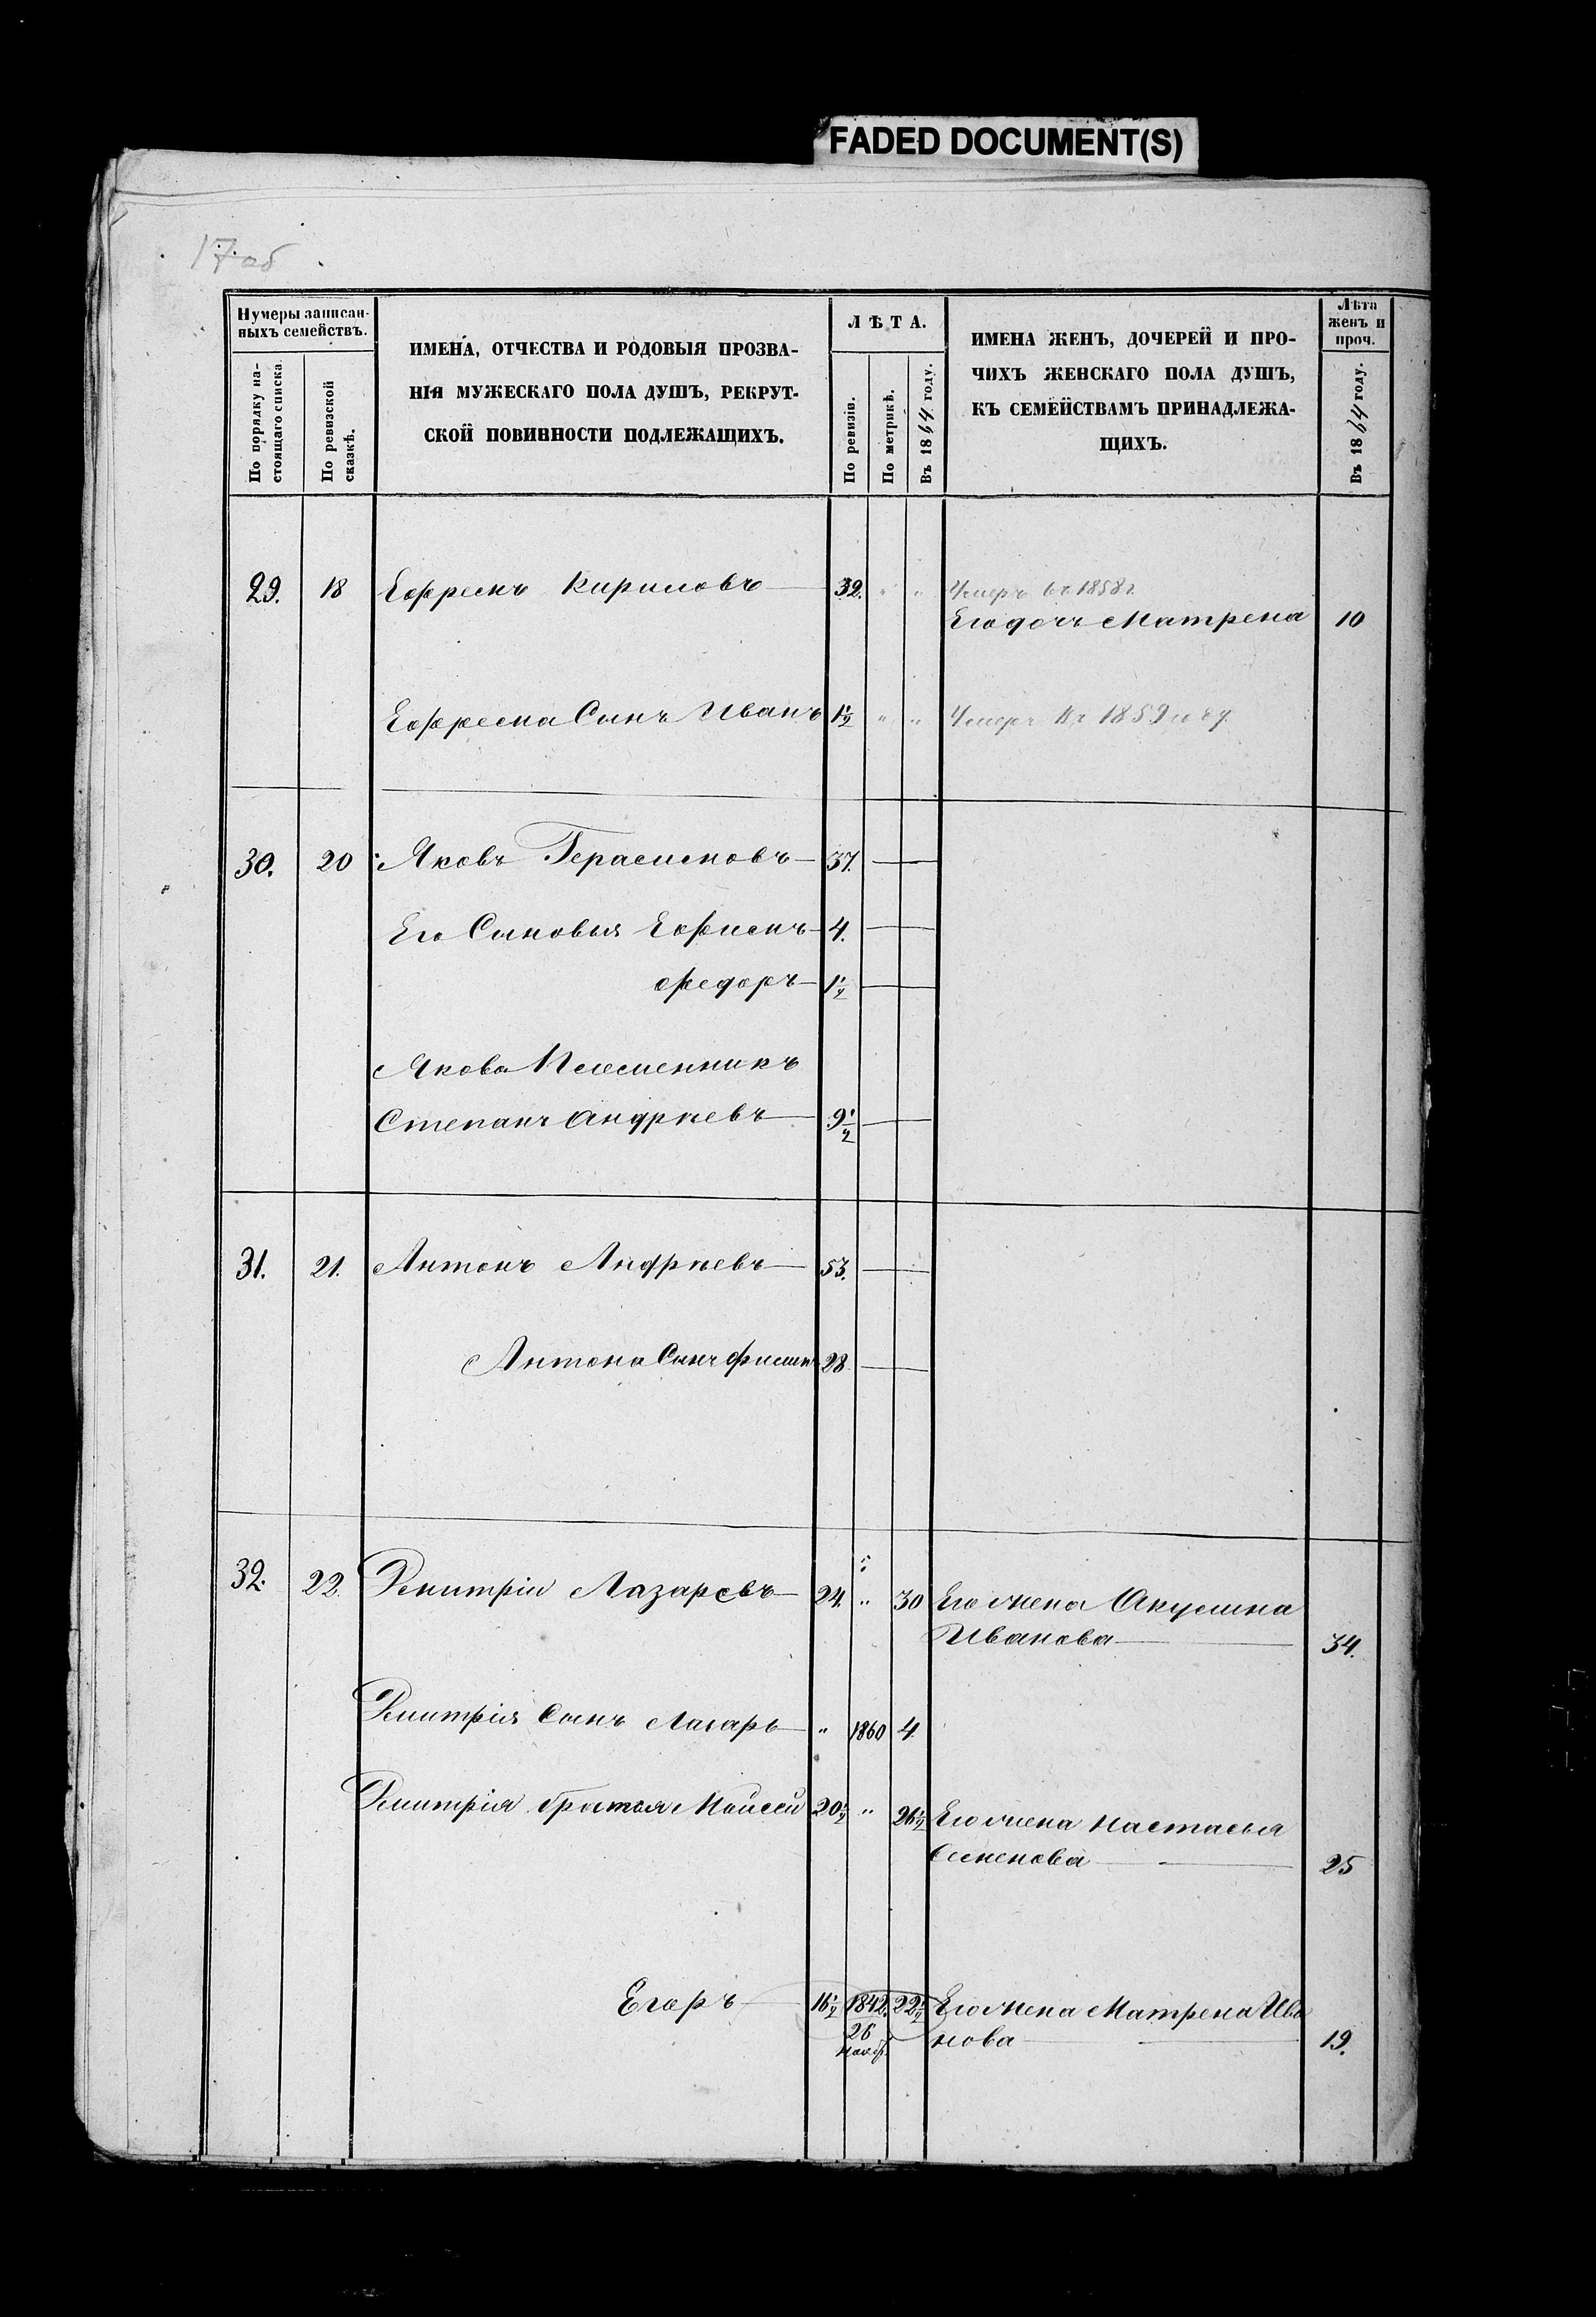 FADED DOCUMENT(S)
17 об
Нумеры записан-
ныхъ семействъ.
По порядку на-
стоящаго списка
По ревизской
сказкѣ.
ИМЕНА, ОТЧЕСТВА И РОДОВЫЯ ПРОЗВА-
НІЯ МУЖЕСКАГО ПОЛА ДУШЪ, РЕКРУТ-
СКОЙ ПОВИННОСТИ ПОДЛЕЖАЩИХЪ.
ЛѢТА.
По ревизіи.
По метрикѣ.
Въ 1864 году.
ИМЕНА ЖЕНЪ, ДОЧЕРЕЙ И ПРО-
ЧИХЪ ЖЕНСКАГО ПОЛА ДУШЪ,
КЪ СЕМЕЙСТВАМЪ ПРИНАДЛЕЖА-
ЩИХЪ.
Лѣта
женъ и
проч.
Въ 1864 году.
29. 18 Ефремъ Кириловъ 32. " " Умеръ въ 1858 г.
Его дочь Матрена 10
Ефрема Сынъ Иванъ 1½ " " Умеръ въ 1859 году
30. 20 Яковъ Герасимовъ 37.
Его Сыновья Ефимъ 4.
Федоръ 1½
Якова Племенникъ
Степанъ Андреевъ 9½
31. 21. Антонъ Андреевъ 53.
Антона Сынъ 28
32. 22. Дмитрій Лазаревъ 24. " 30 Его жена Акулина
Иванова 34.
Дмитрія Сынъ Лазарь " 1860 4
Дмитрія братья Моисей 20½ " 26½ Его жена Настасья
Семенова 25
Егоръ 16½ 1842. 22½ Его жена Матрена Ива
26 нова 19.
Нояб.